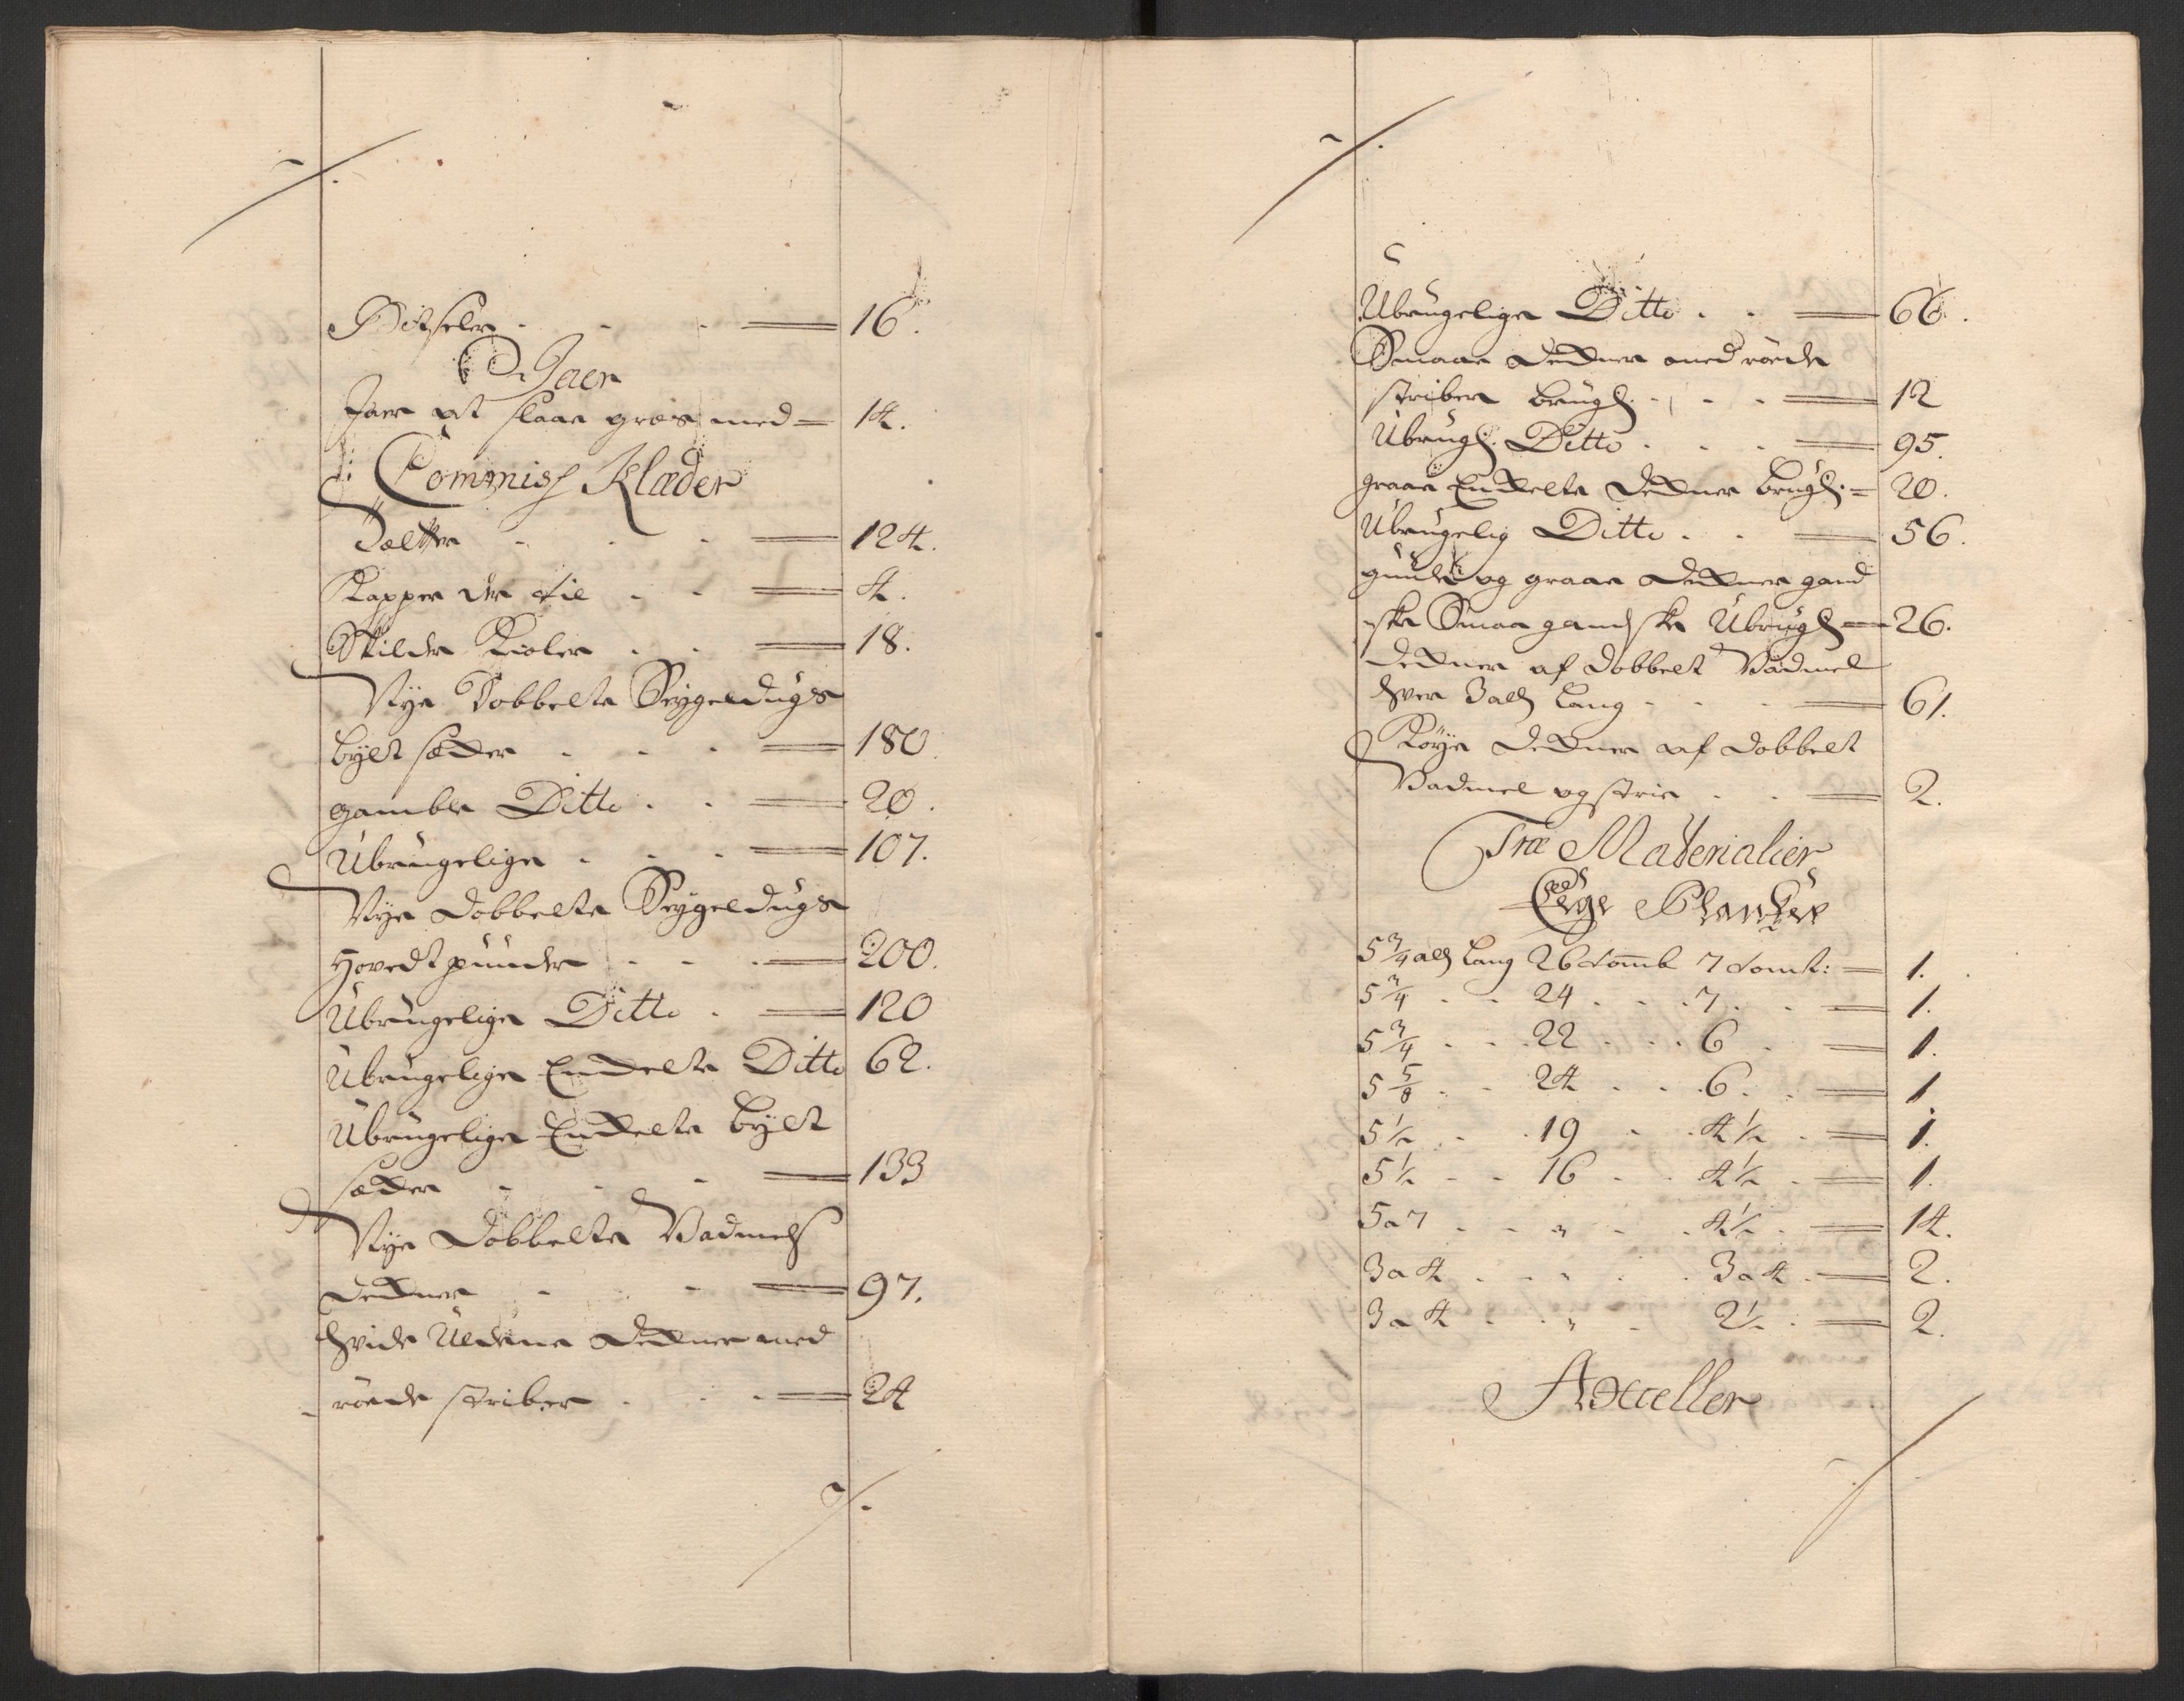 Bitseler - - - 16.
Jaer
Jaer at slaae græs med 14.
Commiss Klæder
Paltter - - - 124.
Kapper der til - - 4.
Skilder Kioler - - 18.
Nye Dobbelte Seygeldugs
bylt sækker - - - 180
gamble Ditto - - 20.
Ubrugelige - - - 107.
Nye dobbelte Seygeldugs
Hovedtpuuder - - - 200.
Ubrugelige Ditto - 120
Ubrugelige Enckelte Ditto 62.
Ubrugelige Enckelte bylt
sækker - - - 133
Nye Dobbelte Vadmels
deckner - - 97.
Hvide Uldene deckner med
røede striber - - - 24
Ubrugelige Ditto - - 66.
Smaae deckner med røede
striber brugl: - - - 12
Ubrugl: Ditto - - - 95.
graae Enckelte deckner brugl: 20.
Ubrugelig Ditto - - 56.
guule og graae deckner gand
ske Smaa gandske Ubrugl 26.
deckner af dobbelt Vadmel
hver 3 all lang - - - 61.
Køye deckner af dobbelt
Vadmel og strie - - 2.
Træ Materialier
Eege Plancker
5 3/4 all lang 26 tomb 7 tomt: 1.
5 3/4 - - 24 - - 7 - - 1.
5 3/4 - - 22 - - 6 - 1.
5 5/8 - - 24 - - 6 - - 1
5 1/2 - - 19 - - 4 1/2 - 1.
5 1/2 - - 16 - - 4 1/2 - 1.
5 a 7 - - " - - 4 1/2 - 14.
3 a 4 - - " - - 3 a 4 - 2.
3 a 4 - - " - 2 1/2 - 2.
Axceller